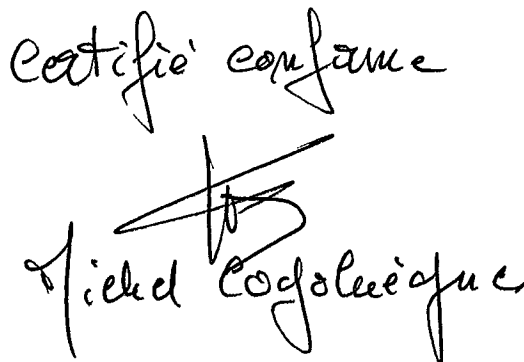 Certifié conforme
Michel Cogoluègnes